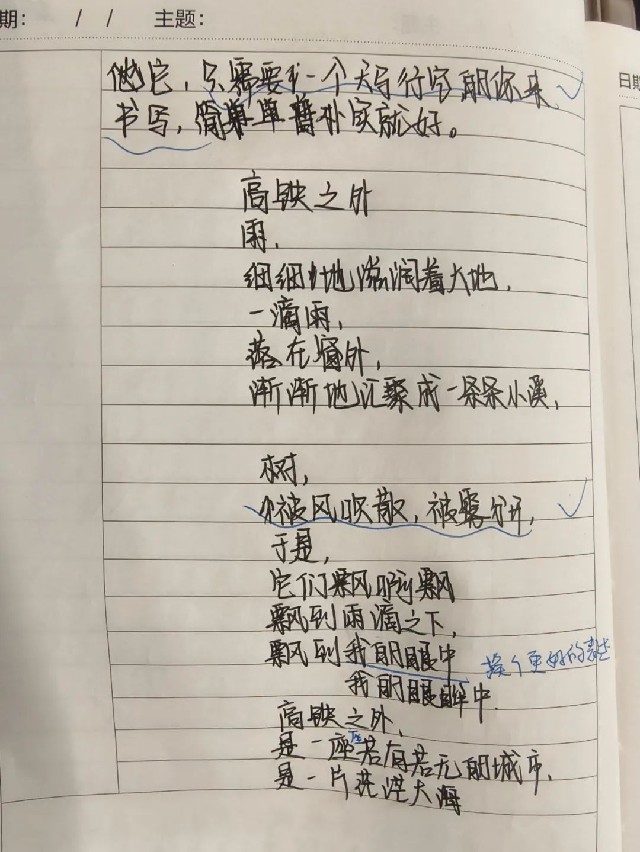 期: / / 主题:
日期
他它,只需要 一个天马行空的你来
书写,简单 朴实就好。
高铁之外
雨,
细细 地滋润着大地,
一滴雨,
落在窗外,
渐渐地汇聚成一条条小溪,
树,
被风吹散,被雾分开,
于是,
它们飘啊飘
飘到雨滴之下,
飘到我的眼中
换个更好的表达
我的眼眸中
高铁之外,
是一座座若有若无的城市,
是一片茫茫大海